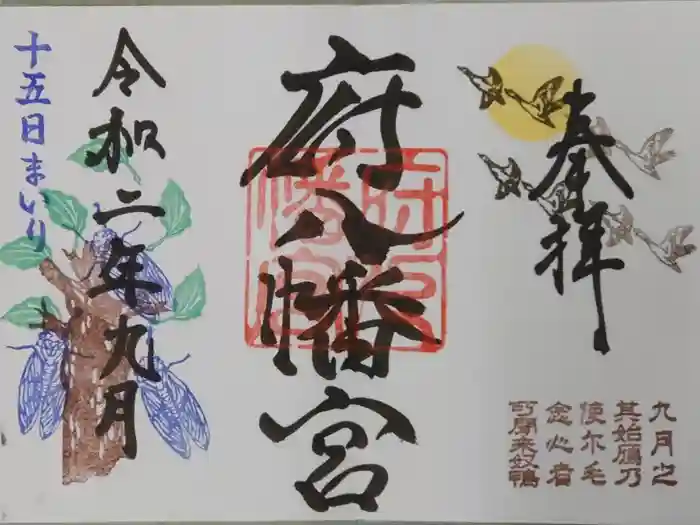 奉拝
九月之
其始鴈乃
使尓毛
念心者
可聞来奴鴨
府八幡宮
府八幡宮
令和二年九月
十五日まいり